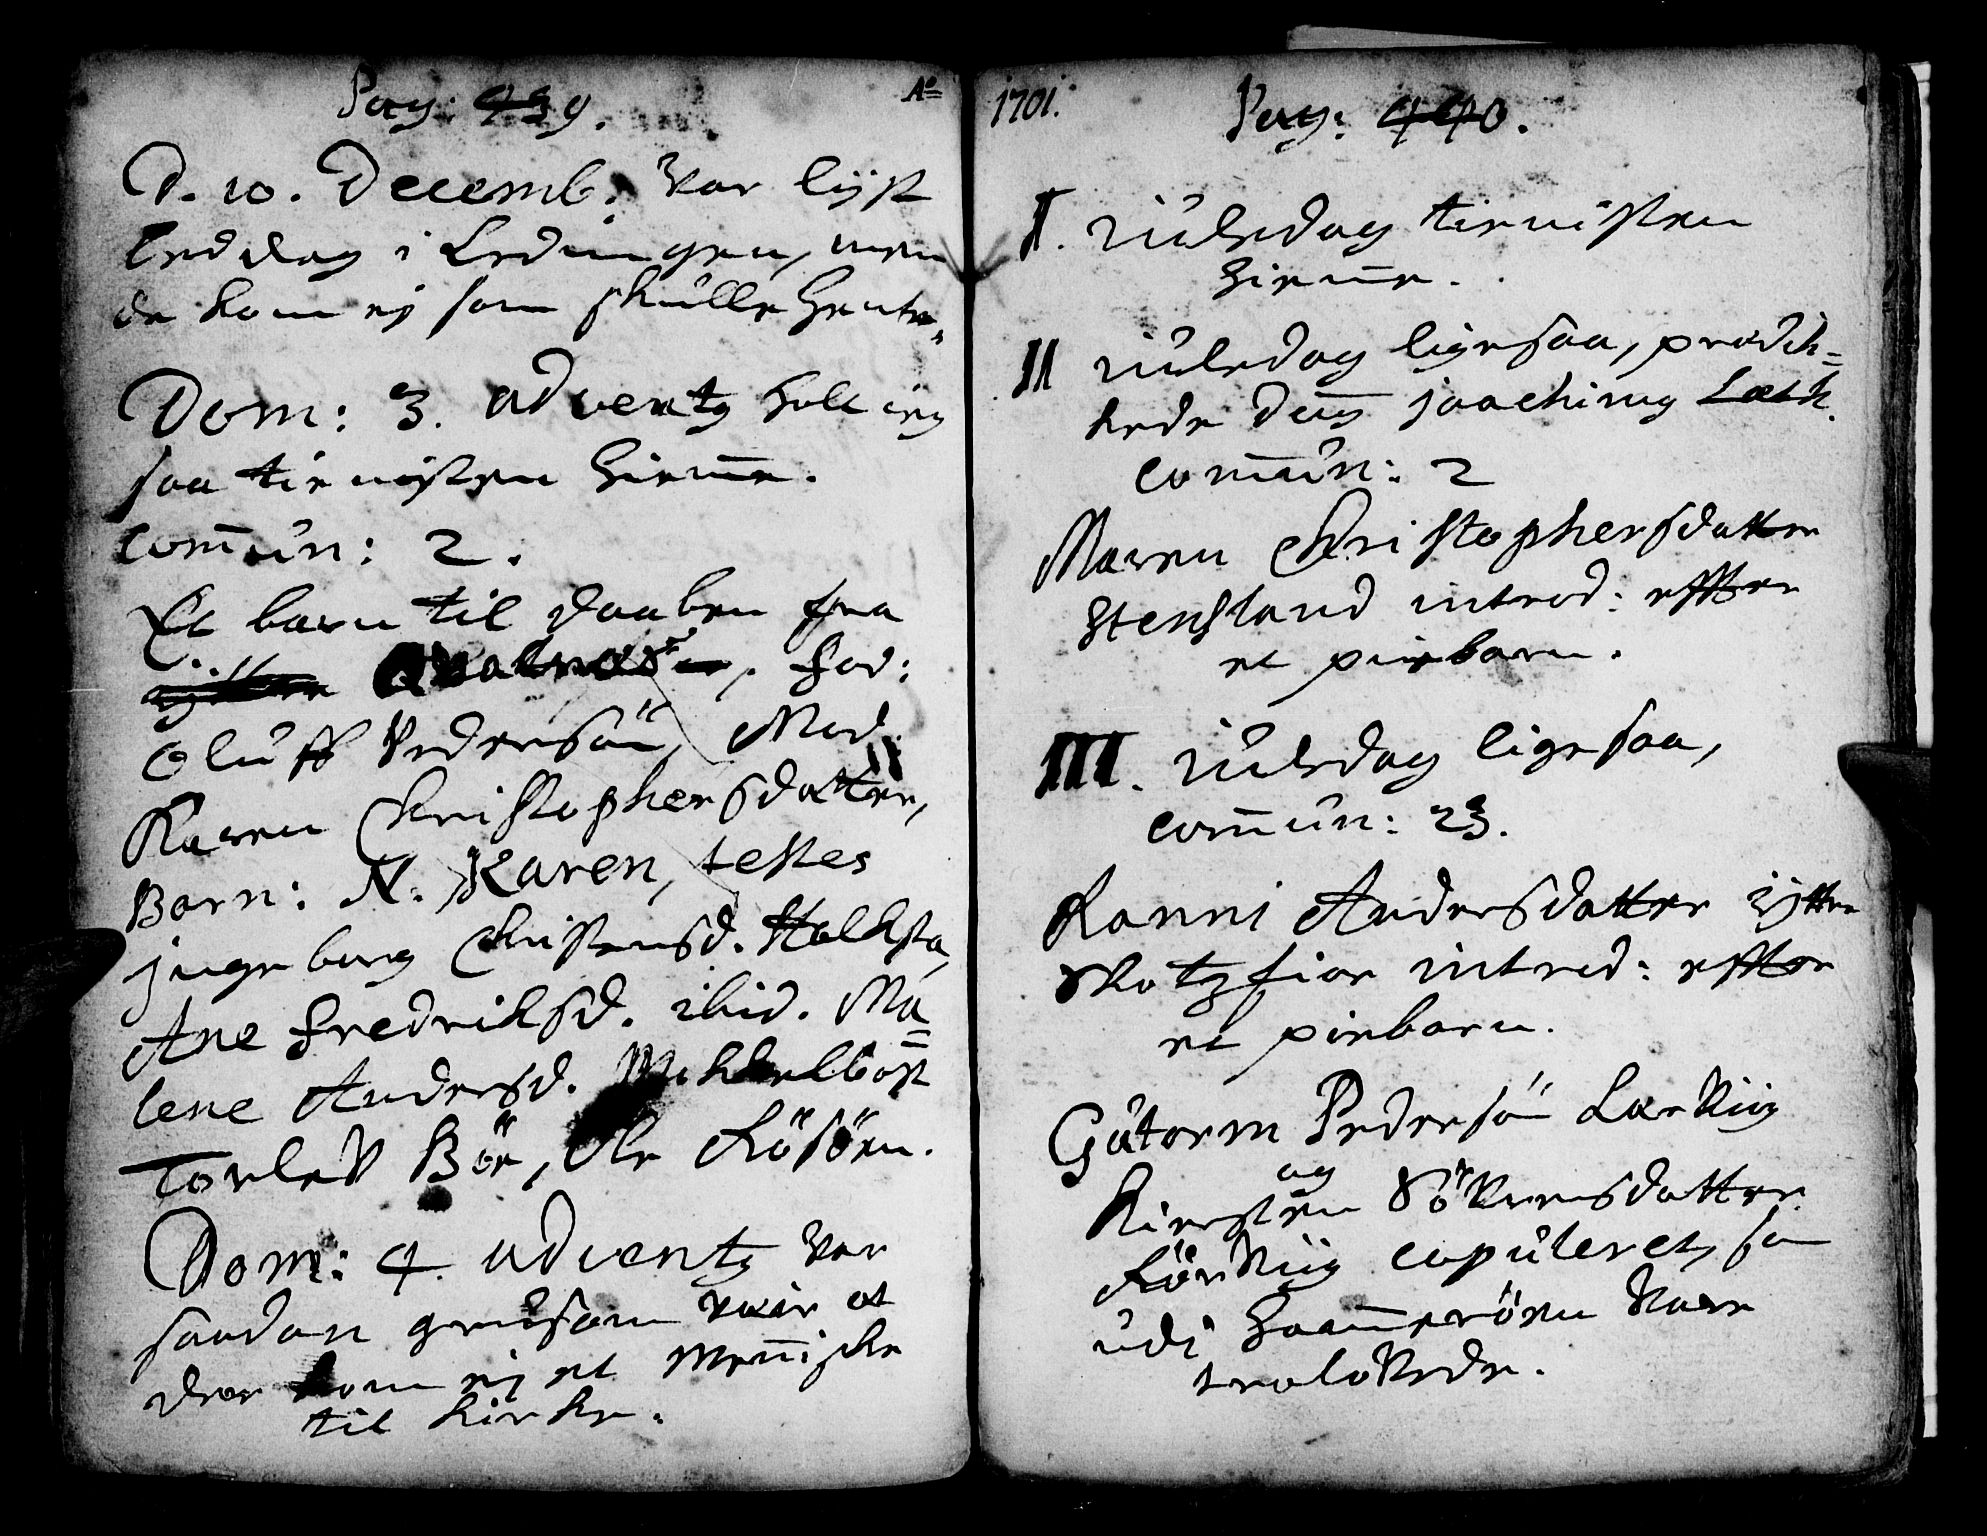 Pag: 439.
Aº
D. 10. Decemb: var lyst
beddag i Ledingen, men
de kom ej som skulle hente.
Dom: 3. adventz holt ieg
saa tienisten hiem̄e.
Com̄un: 2.
Et barn til daaben fra
Fad:
Oluff Pedersön, Mod.
Karen Christophersdatter,
Barn: N. Karen, testes
Jngeborg Christensd.
Ane Fredriksd. ibid. Ma=
lene Andersd.
Torlef Böe, Ole Rösöen.
Dom: 4. adventz var
saadan grusom veir at
der kom ej et men̄iske
til kirke.
1701.
Pag: 440.
I. Juledag tienisten
hiem̄e.
II Juledag ligesaa, prædik=
kede dn̄s Joachimg
Com̄un: 2
Maren Christophersdatter
Stensland introd: effter
et pigebarn.
III. Juledag ligesaa,
Com̄un: 23.
Kanni Andersdatter ytter
Skotzfior introd: effter
et pigebarn.
Gutorm Pedersön
og
Kiersten Sörrensdatter
copuleret, som
udi Hammeröen vare
trolovede.